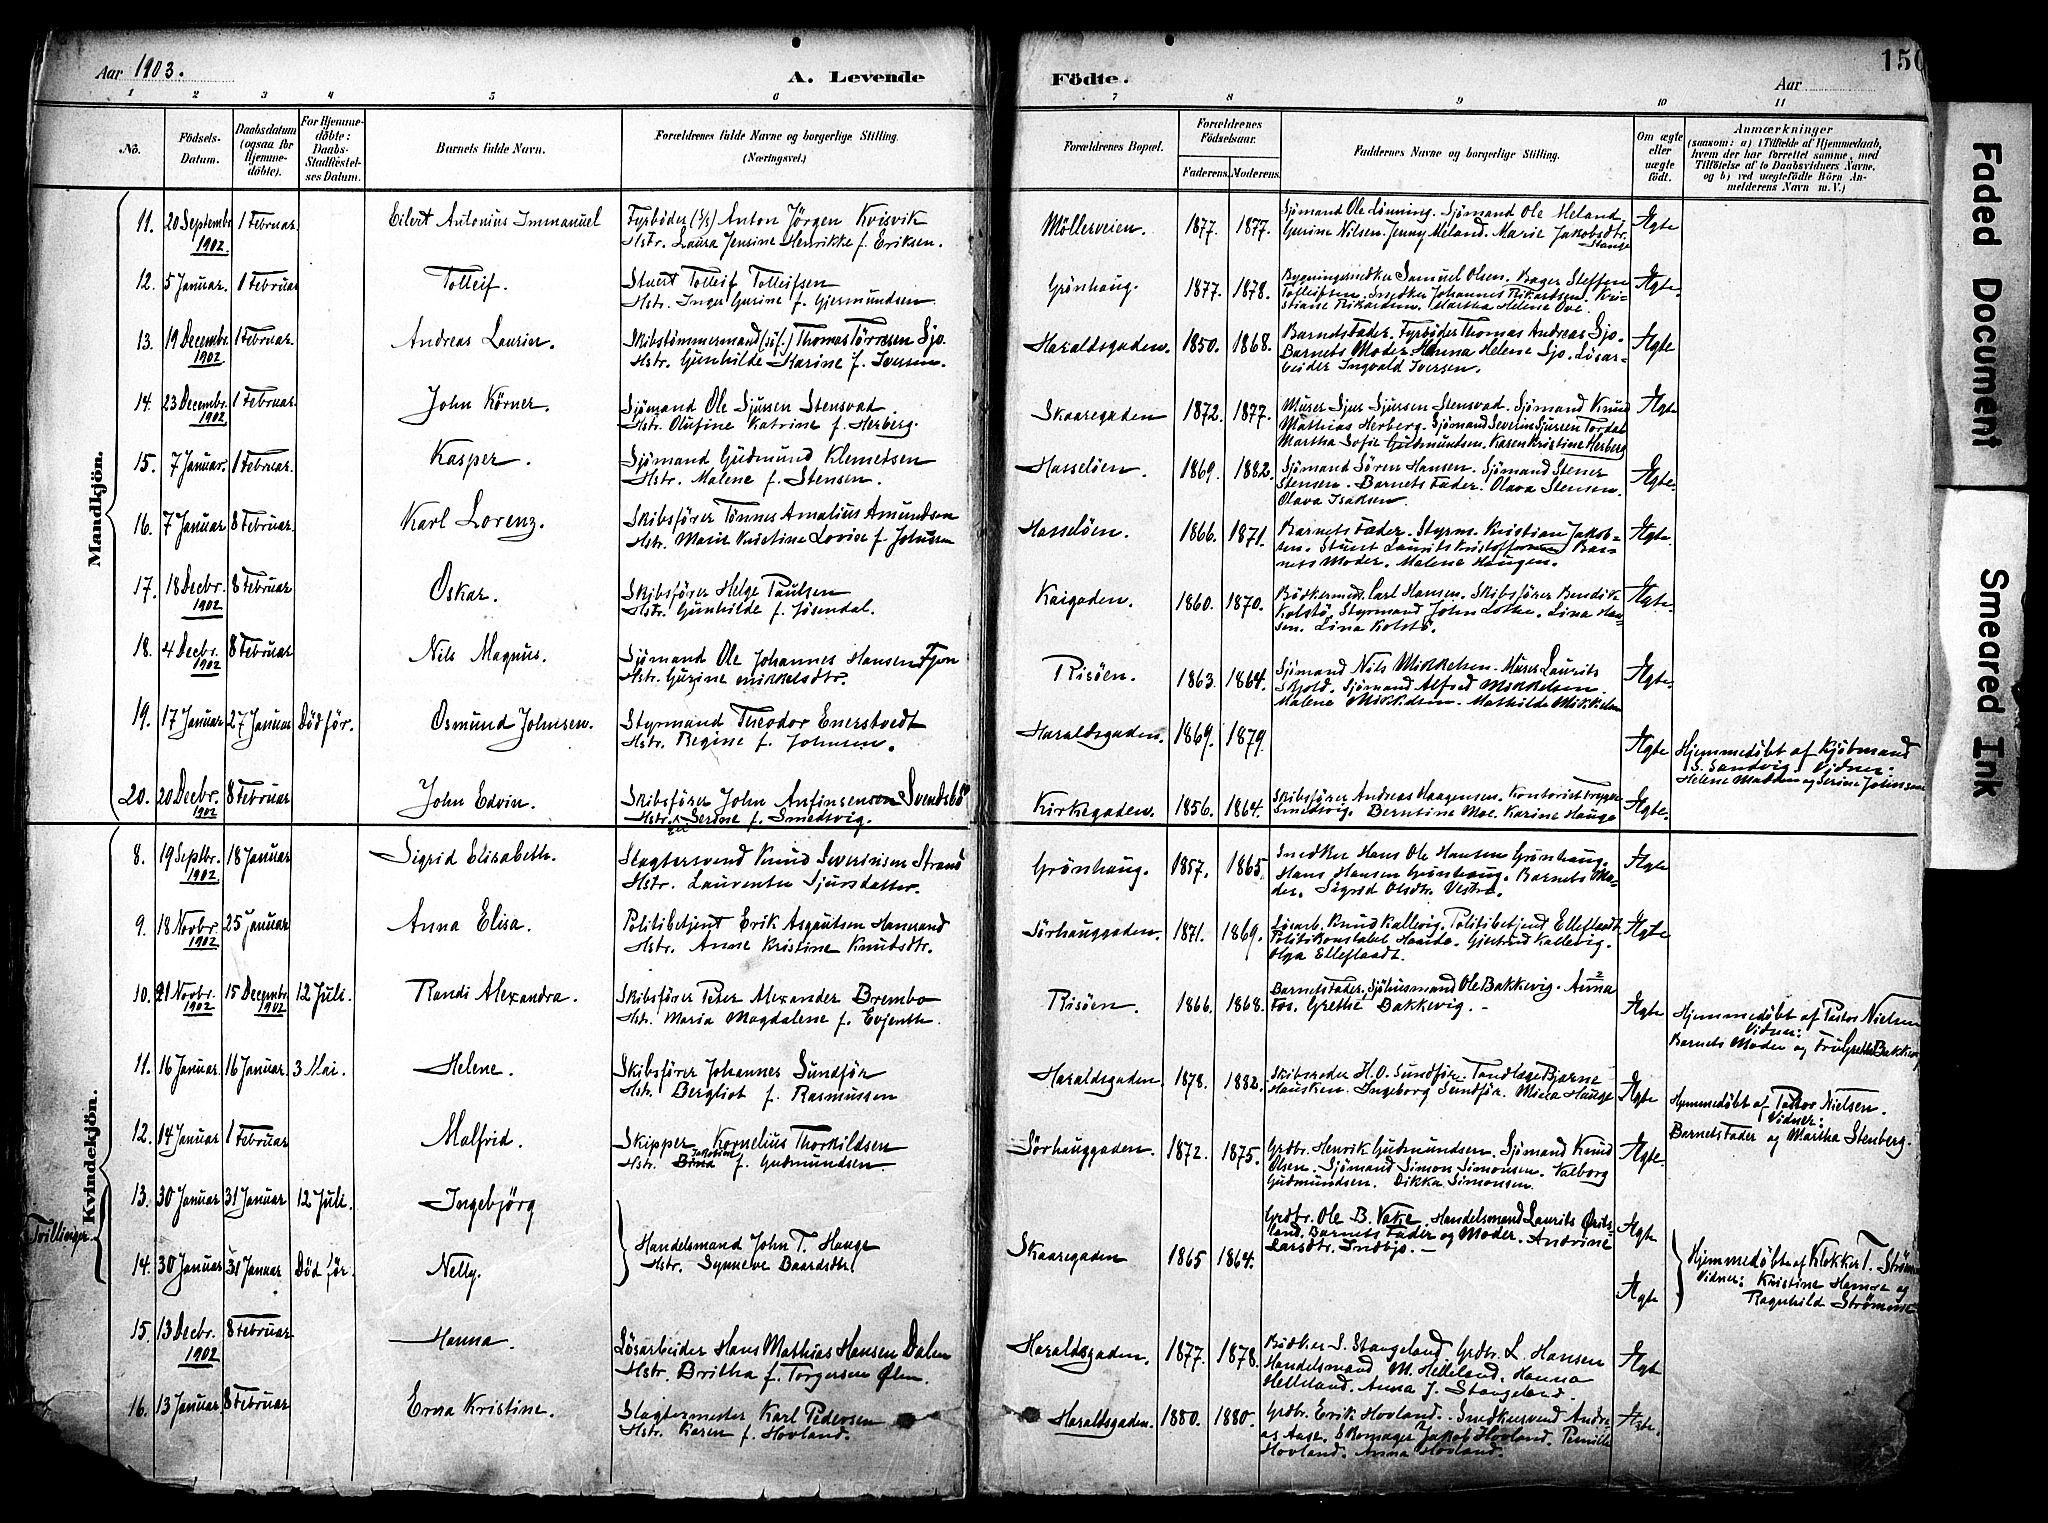 Aar 1903.
A. Levende
Födte.
Aar
150
1 2 3 4 5 6 7 8 9 10 11
No.
Födsels-Datum.
Daabsdatum (ogsaa for Hjemme-döbte).
For Hjemme-döbte: Daabs-Stadfæstel-ses Datum.
Barnets fulde Navn.
Forældrenes fulde Navne og borgerlige Stilling. (Næringsvei.)
Forældrenes Bopæl.
Forældrenes Födselsaar.
Faderens. Moderens.
Faddernes Navne og borgerlige Stilling.
Om ægte eller uægte födt.
Anmærkninger
(saasom: a) i Tilfælde af Hjemmedaab, hvem der har forrettet samme, med Tilföielse af to Daabsvidners Navne, og b) ved uægtefödte Börn An-melderens Navn m. V.)
Mandkjön.
11. 20 Septembr 1902. 1 Februar. Eilert Antonius Immanuel Fyrböder Anton Jörgen Kvisvik Möllerveien. 1877. 1877. Sjömand Ole Lönning. Sjömand Ole Meland. Ægte
Hstr. Laura Jensine Henrikke f. Eriksen. Gurine Nilsen. Jenny Meland. Marie Jakobsdtr. Hauge
12. 5 Januar. 1 Februar Tolleif. Stuert Tolleif Tolleifsen Grönhaug. 1877. 1878. Bygningssnedker Samuel Olsen. Bager Steffen Ægte.
Hstr. Inger Gurine f. Gjermundsen. Tolleifsen. Snedker Johannes Rikardsen. Kri-
stiane Rikardsen. Martha Helene Ove.
13. 19 Decembr. 1902 1 Februar. Andreas Laurin. Skibstömmermand Thomas Törresen Sjo. Haraldsgaden. 1850. 1868. Barnets Fader. Fyrböder Thomas Andreas Sjo. Ægte
Hstr. Gunhilde Marine f. Iversen. Barnets Moder. Hanna Helene Sjo. Lösar-
beider Ingvald Iversen.
14. 23 Decembr. 1902. 1 Februar. John Körner. Sjömand Ole Sjursen Stensvad. Skaaregaden 1872. 1877. Murer Sjur Sjursen Stensvad. Sjömand Knud Ægte
Hstr. Olufine Katrine f. Herberg. Mathias Herberg. Sjömand Severin Sjursen Tordal
Martha Sofie Gudmundsen. Karen Kristine Herberg
15. 7 Januar. 1 Februar. Kasper. Sjömand Gudmund Klemetsen Hasselöen. 1869. 1882. Sjömand Sören Hansen. Sjömand Stener Ægte.
Hstr. Malene f. Stensen. Stensen. Barnets Fader. Olava Stensen.
Olava Isaksen.
16. 7 Januar 8 Februar. Karl Lorenz. Skibsförer Tönnes Amalius Amundsen Hasselöen. 1866. 1871. Barnets Fader. Styrm. Kristian Jakob- Ægte.
Hstr. Marie Kristine Lovise f. Johnsen sen. Stuert Laurits Kristoffersen. Bar-
nets Moder. Malene Haugen.
17. 18 Decbr. 1902 8 Februar. Oskar. Skibsförer Helge Paulsen Kaigaden. 1860. 1870. Bödkermed. Carl Hansen. Skibsförer Bendik Ægte.
Hstr. Gunhilde f. Jösendal. Kolstö. Styrmand John Lothe. Lina Han-
sen. Lina Kolstö.
18. 4 Decbr. 1902 8 Februar Nils Magnus. Sjömand Ole Johannes Hansen Fjon Risöen. 1863. 1864. Sjömand Nils Mikkelsen. Murer Laurits Ægte.
Hstr. Gurine Mikkelsdtr. Skjold. Sjömand Alfred Mikkelsen.
Malene Mikkelsen. Mathilde Mikkelsen
19. 17 Januar 27 Januar Död för. Osmund Johnsen. Styrmand Theodor Enerstvedt Haraldsgaden. 1869. 1879. Ægte Hjemmedöbt af Kjöbmand
Hstr. Regine f. Johnsen. S. Sandvig. Vidner:
Helene Madsen og Serine Johnsen
20. 20 Decbr. 1902 8 Februar John Edvin. Skibsförer John Anfinsensen Svendsbö Kirkegaden. 1856. 1864. Skibsförer Andreas Haagensen. Kontorist Trygve Ægte.
Hstr. Serine f. Smedsvig. Smedsvig. Berntine Moe. Karine Hauge
Kvindekjön.
8. 19 Septbr. 1902 18 Januar Sigrid Elisabeth. Slagtersvend Knud Severinsen Strand Grönhaug. 1857. 1865. Snedker Hans Ole Hansen Grönhaug. Ægte
Hstr. Laurentse Sjursdatter. Hans Hansen Grönhaug. Barnets Mo-
der. Sigrid Olsdtr. Vestre.
9. 18 Novbr. 1902 25 Januar Anna Elisa. Politibetjent Erik Asgautsen Hannand Sörhauggaden. 1871. 1869. Lösarb. Knud Kallevig. Politibetjent Elleflaadt Ægte
Hstr. Anne Kristine Knudsdtr. Politikonstabel Haade. Gjertrud Kallevig.
Olga Elleflaadt.
10. 21 Novbr. 1902 15 Decembr. 1902 12 Juli. Randi Alexandra. Skibsförer Peter Alexander Brembo Risöen. 1866. 1868. Barnets Fader. Sjöhusmand Ole Bakkevig. Anna Ægte Hjemmedöbt af Pastor Nielsen
Hstr. Maria Magdalene f. Evjenth. Fos. Grethe Bakkevig. Vidner:
Barnets Moder og Fru Grethe Bakkevig
11. 16 Januar 16 Januar 3 Mai. Helene. Skibsförer Johannes Sundför Haraldsgaden. 1878. 1882. Skibsreder H. O. Sundför. Tandlæge Bjarne Ægte Hjemmedöbt af Pastor Nielsen.
Hstr. Bergliot f. Rasmussen Hausken. Ingeborg Sundför. Mina Hauge Vidner:
Barnets Fader og Martha Stenberg.
12. 14 Januar 1 Februar Malfrid. Skipper Kornelius Thorkildsen Sörhauggaden. 1872. 1875. Grdbr. Henrik Gudmundsen. Sjömand Knud Ægte.
Hstr. Jakobine f. Gudmundsen Olsen. Sjömand Simon Simonsen. Valborg
Gudmundsen. Dikka Simonsen.
Tvillinger.
13. 30 Januar 31 Januar 12 Juli. Ingebjörg Grdbr. Ole B. Vake. Handelsmand Laurits Ørits- Ægte
Handelsmand John T. Hauge Skaaregaden 1865 1864. land. Barnets Fader og Moder. Andrine Hjemmedöbt af Klokker T. Strömme
14. 30 Januar 31 Januar Död för. Nelly. Hstr. Synneve Baardsdtr. Larsdtr. Indbjo. Ægte Vidner: Kristine Hamre og
Ragnhild Strömme
15. 13 Decbr. 1902 8 Februar. Hanna. Lösarbeider Hans Mathias Hansen Dalen Haraldsgaden. 1877. 1878. Bödker S. Stangeland. Grdbr. L. Hansen Ægte
Hstr. Britha f. Torgersen Ølen. Handelsmand M. Helleland. Hanna
Helleland. Anna J. Stangeland.
16. 13 Januar 8 Februar Erna Kristine. Slagtermester Karl Pedersen Haraldsgaden. 1880. 1880. Grdbr. Erik Hovland. Snedkersvend Andre- Ægte.
Hstr. Karen f. Hovland. as Aase. Skomager Jakob Hovland. Pernille
Hovland. Anna Hovland.
Faded Document
Smeared Ink